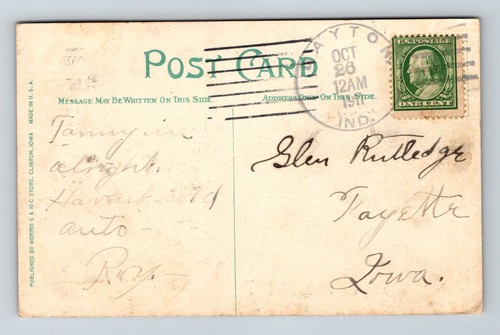 POST CARD
MESSAGE MAY BE WRITTEN ON THIS SIDE
ADDRESS ONLY ON THIS SIDE
PUBLISHED BY MORRIS 5 & 10 C STORE, CLINTON, IOWA   MADE IN U.S.A.
AYTON
OCT
26
12AM
1911
IND.
U.S. POSTAGE
ONE CENT
in
alright.
Havent sold
auto
Roy
Glen Rutledge
Fayette
Iowa.